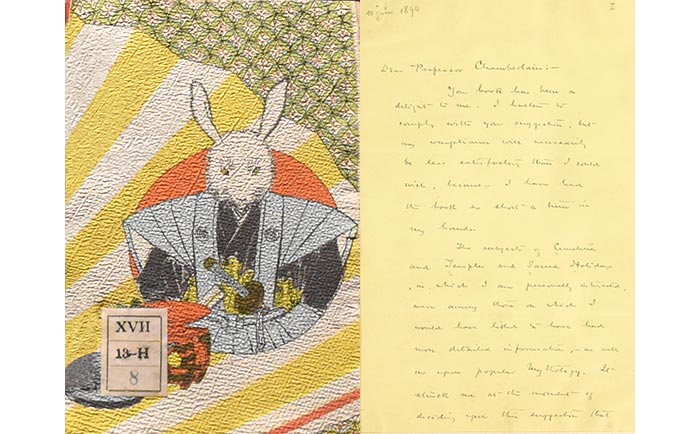 XVII
13-H
8
10 juin 1890
I
Dear Professor Chamberlain:—
Your book has been a
delight to me. I hasten to
comply with your suggestion, but
my compliance will necessarily
be less satisfactory than I could
wish, because I have had
the book so short a time in
my hands.
The subjects of Cemeteries
and Temples and Sacred Holidays
, in which I am personally interested,
were among those on which I
would have liked to have had
more detailed information, — as well
as upon popular Mythology. It
struck me at the moment of
deciding upon this suggestion that